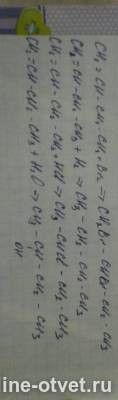 CH₂ = CH - CH₂ - CH₃ + Br₂ => CH₂Br - CHBr - CH₂ - CH₃
CH₂ = CH - CH₂ - CH₃ + H₂ => CH₃ - CH₂ - CH₂ - CH₃
CH₂ = CH - CH₂ - CH₃ + HCl => CH₃ - CHCl - CH₂ - CH₃
CH₂ = CH - CH₂ - CH₃ + H₂O => CH₃ - CH - CH₂ - CH₃
OH
ine-otvet.ru